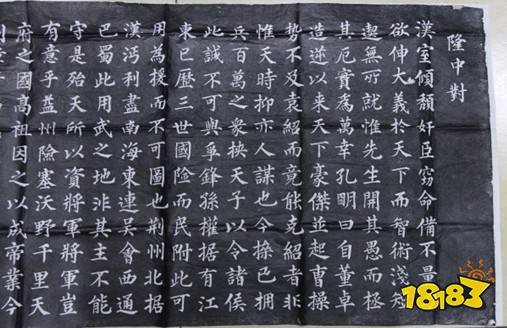 隆中對
漢室傾頹奸臣竊命備不量
欲伸大義於天下而智術淺短
無所就惟先生開其愚而拯
其厄實為萬幸孔明曰自董卓
造逆以來天下豪傑並起曹操
勢不及袁紹而竟能克紹者非
惟天時抑亦人謀也今操已拥
兵百萬之衆挾天子以令諸侯
此誠不可與爭鋒孫權據有江
東已歷三世國險而民附此可
用為援而不可圖也荊州北據
漢沔利盡南海東連吳會西通
巴蜀此用武之地非其主不能
守是殆天所以資將軍將軍豈
有意乎益州險塞沃野千里天
府之國高祖因之以成帝業今
18183